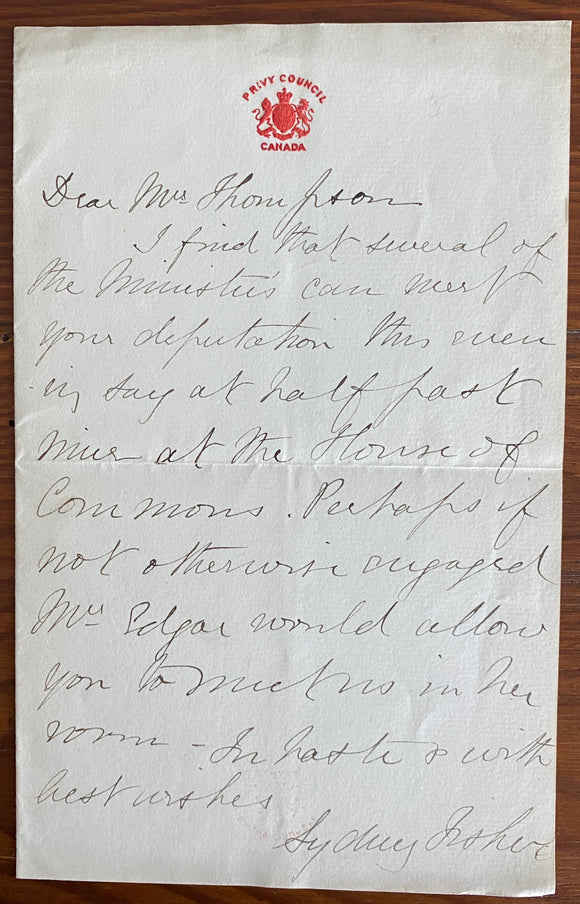 PRIVY COUNCIL
CANADA
Dear Mrs Thompson
I find that several of
the Ministers can meet
your deputation this even
ing say at half past
nine at the House of
Commons. Perhaps if
not otherwise engaged
Mrs Edgar would allow
you to meet us in her
room - In haste & with
best wishes
Sydney Fisher